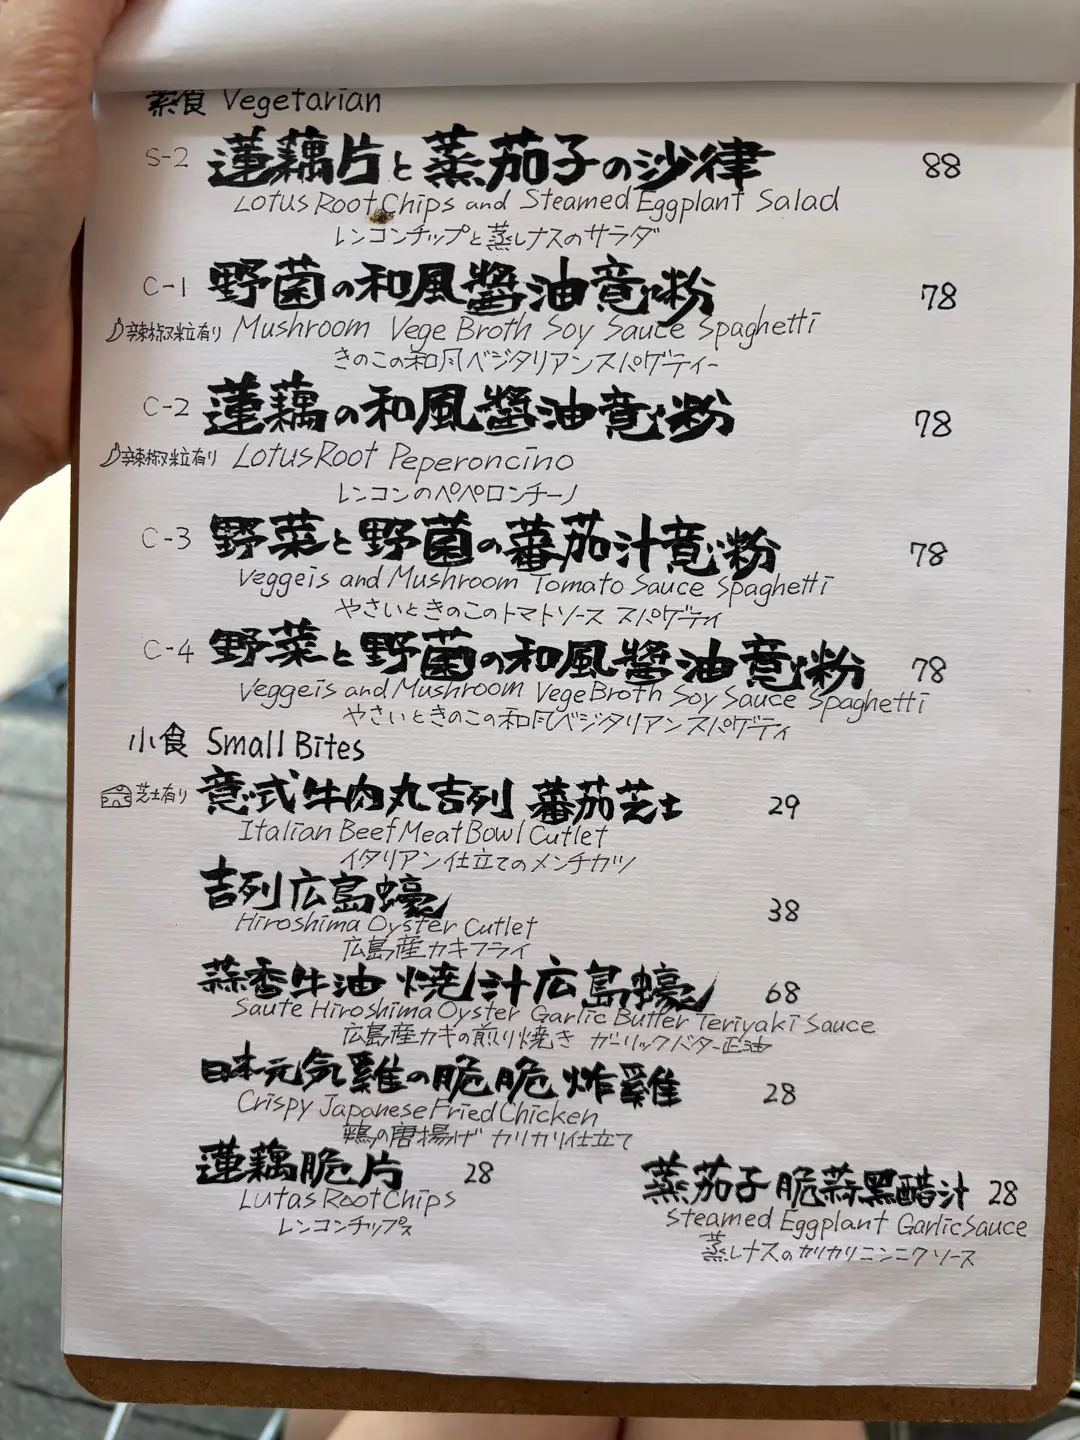 素食 Vegetarian
S-2 蓮藕片と蒸茄子の沙律 88
Lotus Root Chips and Steamed Eggplant Salad
レンコンチップと蒸しナスのサラダ
C-1 野菌の和風醬油意粉 78
辣椒粒有り Mushroom Vege Broth Soy Sauce Spaghetti
きのこの和風ベジタリアンスパゲティー
C-2 蓮藕の和風醬油意粉 78
辣椒粒有り Lotus Root Peperoncino
レンコンのペペロンチーノ
C-3 野菜と野菌の蕃茄汁意粉 78
Veggeis and Mushroom Tomato Sauce Spaghetti
やさいときのこのトマトソース スパゲティ
C-4 野菜と野菌の和風醬油意粉 78
Veggeis and Mushroom Vege Broth Soy Sauce Spaghetti
やさいときのこの和風ベジタリアンスパゲティ
小食 Small Bites
芝士有り 意式牛肉丸吉列 蕃茄芝士 29
Italian Beef Meat Bowl Cutlet
イタリアン仕立てのメンチカツ
吉列広島蠔 38
Hiroshima Oyster Cutlet
広島産カキフライ
蒜香牛油 燒汁広島蠔 68
Saute Hiroshima Oyster Garlic Butter Teriyaki Sauce
広島産カキの煎り焼き ガーリックバター正油
日本元気雞の脆脆炸雞 28
Crispy Japanese Fried Chicken
鶏の唐揚げ カリカリ仕立て
蓮藕脆片 28
Lutas Root Chips
レンコンチップス
蒸茄子脆蒜黑醋汁 28
Steamed Eggplant Garlic Sauce
蒸しナスのカリカリニンニクソース